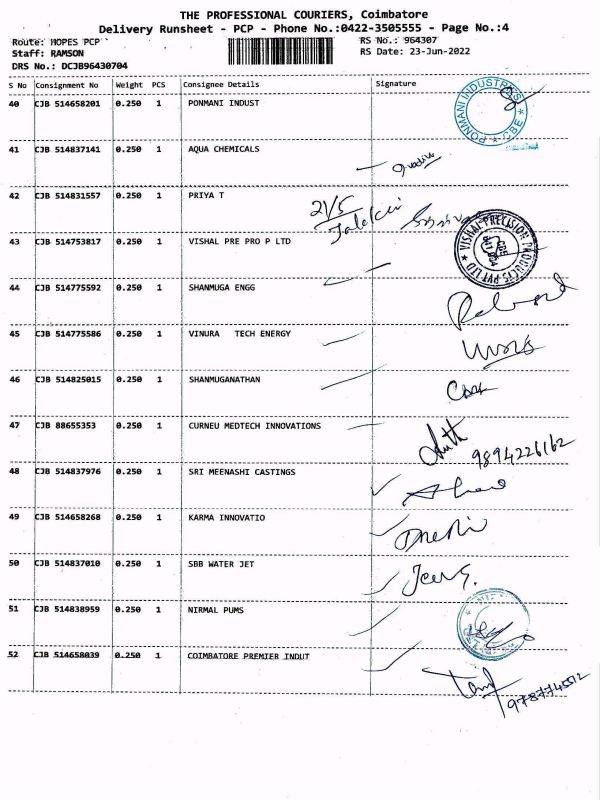 THE PROFESSIONAL COURIERS, Coimbatore
Delivery Runsheet - PCP - Phone No.:0422-3505555 - Page No.:4
Route: HOPES PCP RS No.: 964307
Staff: RAMSON RS Date: 23-Jun-2022
DRS No.: DCJB96430704
S No Consignment No Weight PCS Consignee Details Signature
40 CJB 514658201 0.250 1 PONMANI INDUST
PONMANI INDUSTRIES * CBE *
41 CJB 514837141 0.250 1 AQUA CHEMICALS
42 CJB 514831557 0.250 1 PRIYA T
21/5
43 CJB 514753817 0.250 1 VISHAL PRE PRO P LTD
VISHAL PRECISION PRODUCTS PVT LTD *
CBE
641 004
44 CJB 514775592 0.250 1 SHANMUGA ENGG
45 CJB 514775586 0.250 1 VINURA TECH ENERGY
46 CJB 514825015 0.250 1 SHANMUGANATHAN
47 CJB 88655353 0.250 1 CURNEU MEDTECH INNOVATIONS
9894226162
48 CJB 514837976 0.250 1 SRI MEENASHI CASTINGS
49 CJB 514658268 0.250 1 KARMA INNOVATIO
50 CJB 514837010 0.250 1 SBB WATER JET
51 CJB 514838959 0.250 1 NIRMAL PUMS
52 CJB 514658039 0.250 1 COIMBATORE PREMIER INDUT
9787745512